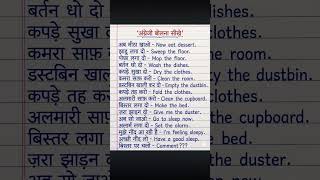 'अंग्रेजी बोलना सीखे'
अब मीठा खाओ - Now eat dessert.
झाडू लगा दो - Sweep the floor.
पोछा लगा दो - Mop the floor.
बर्तन धो दो - Wash the dishes.
कपड़े सुखा दो - Dry the clothes.
कमरा साफ़ करो - Clean the room.
डस्टबिन खाली कर दो - Empty the dustbin.
कपड़े तह करो - Fold the clothes.
अलमारी साफ करो - Clean the cupboard.
बिस्तर लगा दो - Make the bed.
ज़रा झाड़न दो - Give me the duster.
अब सो जाओ - Go to sleep now.
अलार्म लगा दो - Set the alarm.
मुझे नींद आ रही है - I'm feeling sleepy.
अच्छी नींद लो - Have a good sleep.
बिस्तर पर चलो - Comment???